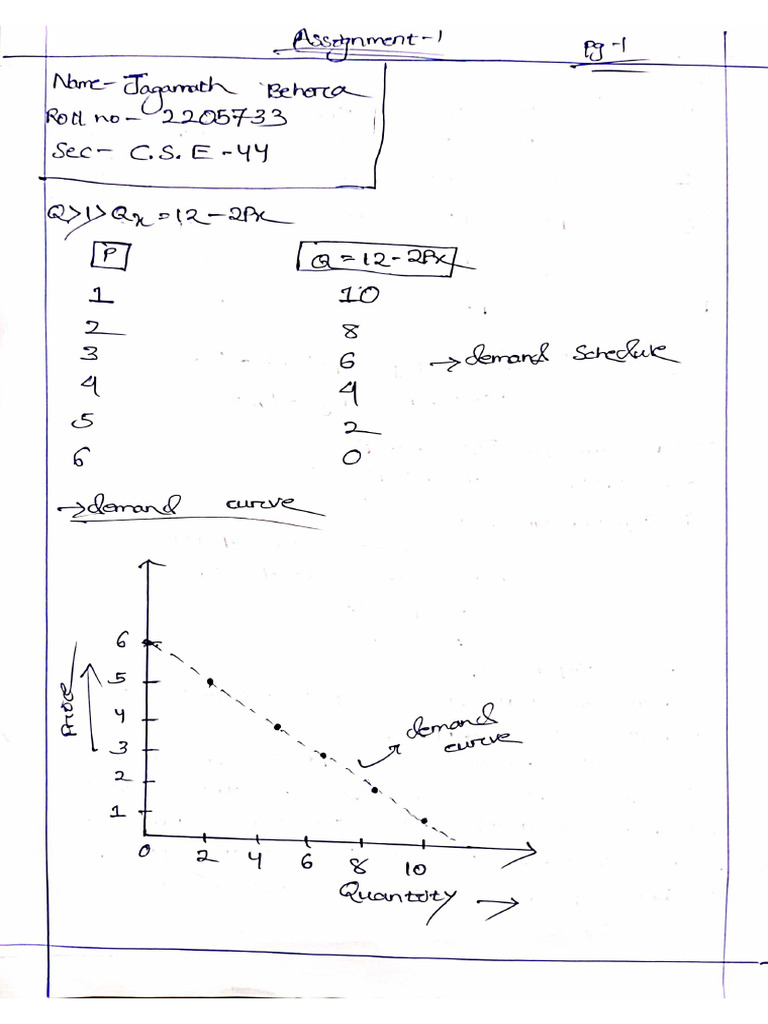 Assignment-1
Pg-1
Name- Jagannath Behera
Roll no- 2205733
Sec- C.S.E-44
Q>1> Qx = 12 - 2Px
P Q = 12 - 2Px
1 10
2 8
3 6 → demand schedule
4 4
5 2
6 0
→ demand curve
6
5
4
3
2
1
Price
demand
curve
0 2 4 6 8 10
Quantity →